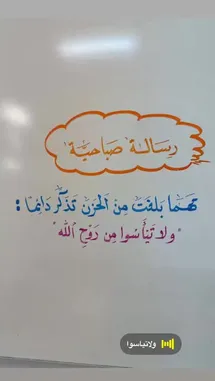 رسالة صباحية
مهما بلغت من الحزن تذكر دائما :
"ولا تيأسوا من روح الله"
ولاتياسوا